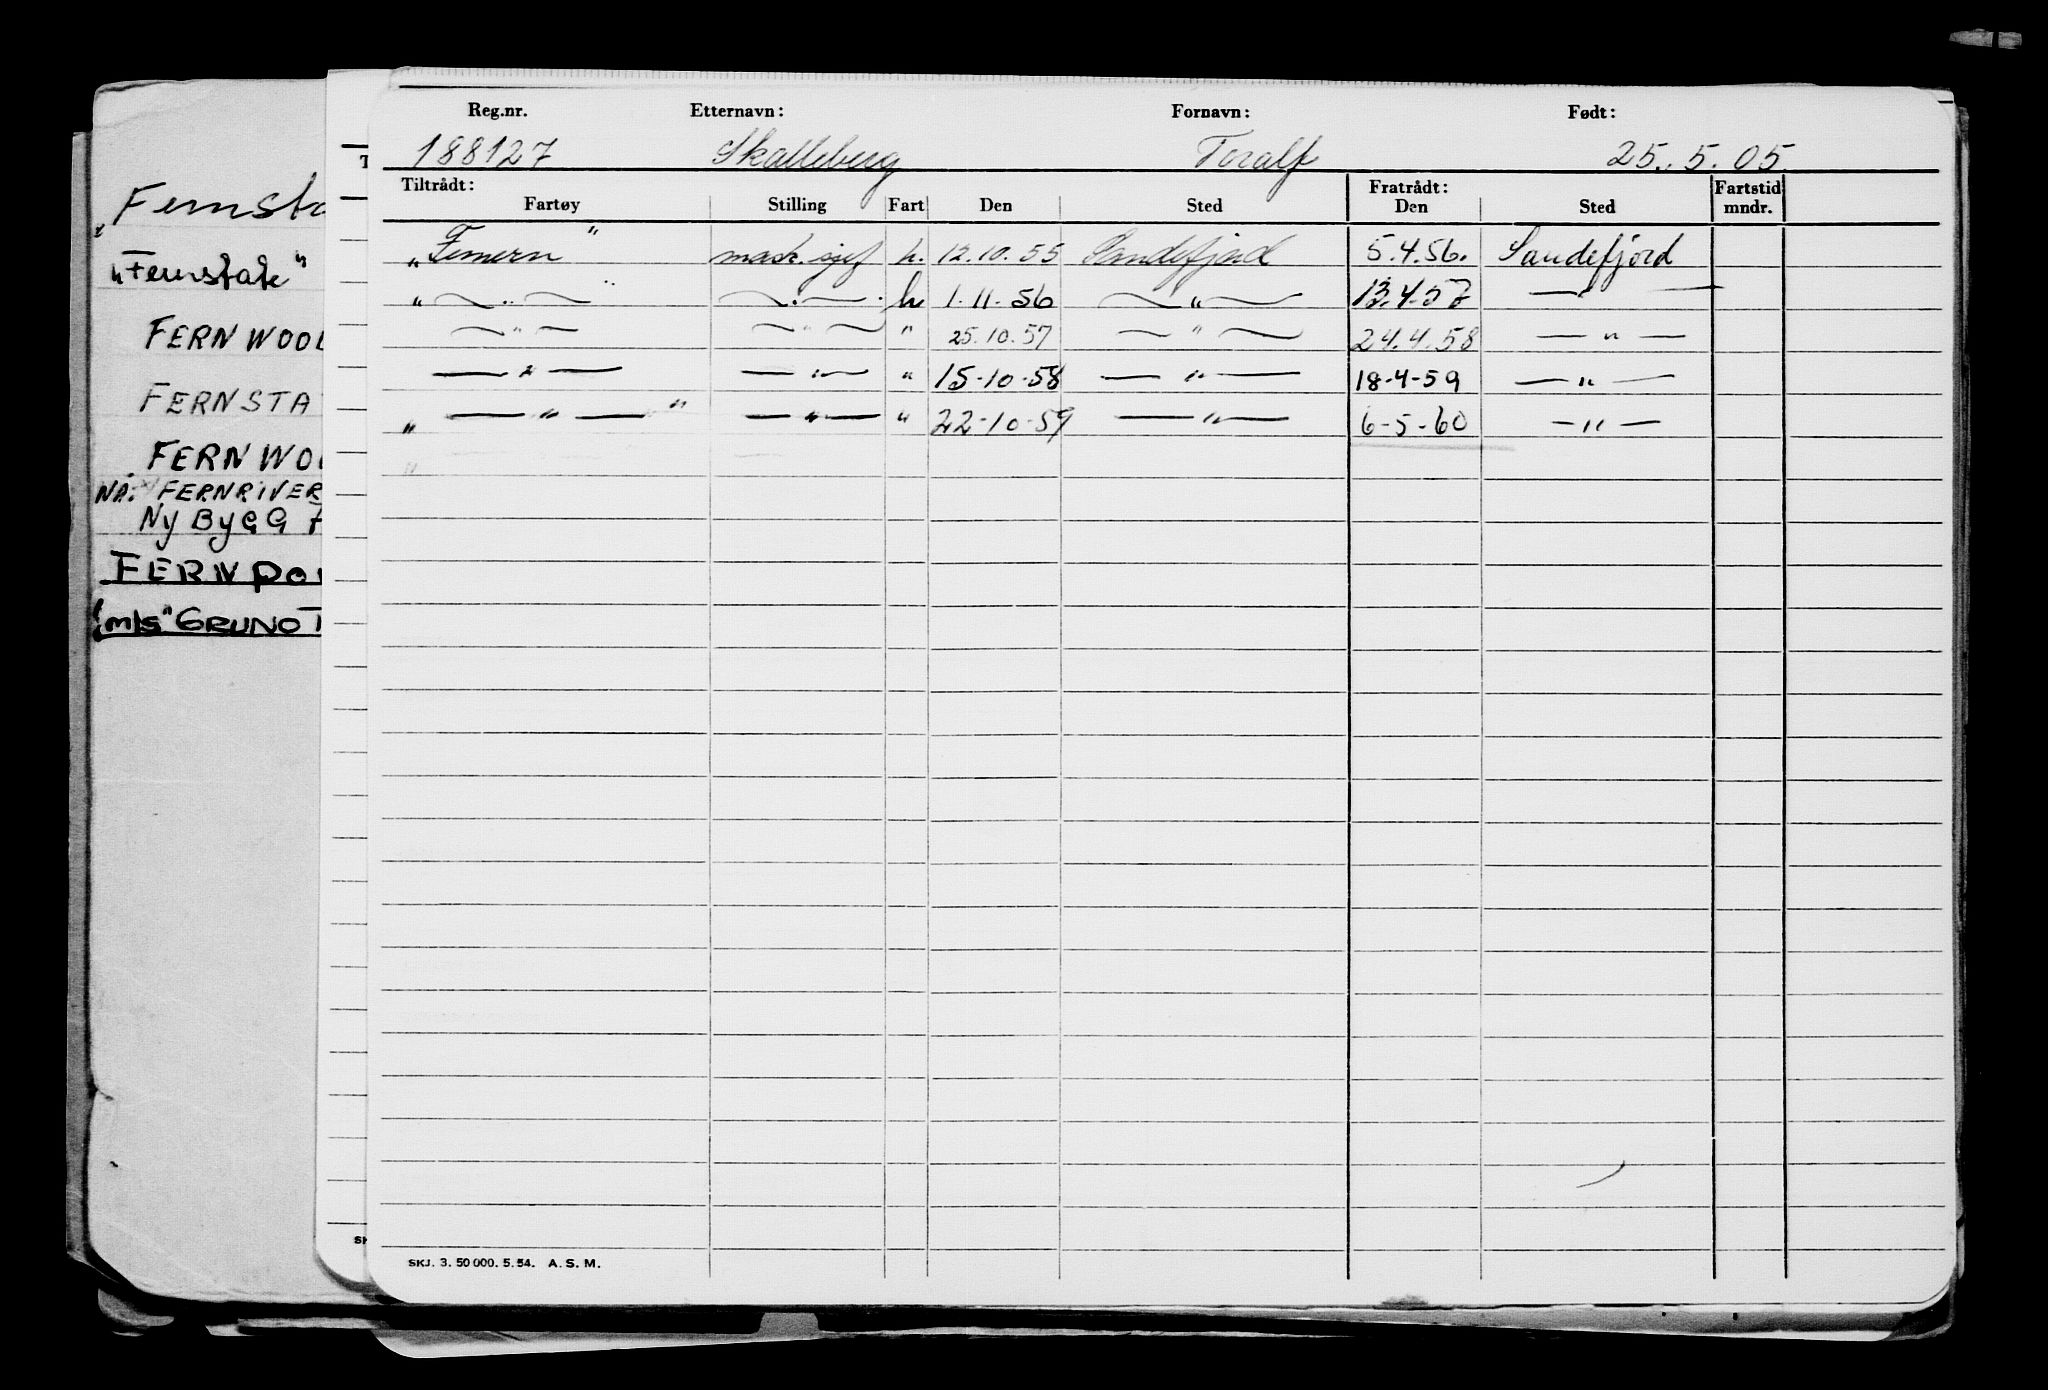 Reg.nr. Etternavn: Fornavn: Født:
188127 Skalleberg Toralf 25.5.05.
Tiltrådt: Fratrådt: Fartstid
Fartøy Stilling Fart Den Sted Den Sted mndr.
„Femern" mask. sjef h. 12.10.55 Sandefjord 5.4.56. Sandefjord
" — " — — " — h 1.11.56 — " — 13.4.57 — " —
— " — — " — " 25.10.57 — " — 24.4.58 — " —
— " — — " — " 15-10-58 — " — 18-4-59 — " —
„ — " — " — " — " 22-10-59 — " — 6-5-60 — " —
"
SKJ. 3. 50 000. 5. 54. A. S. M.
„Fernsta
„Fernstate"
FERNWOO
FERNSTA
FERNWO
NA. FERNRIVER
NyByGG
FERNPO
(m/s "GRUNO
T
SK